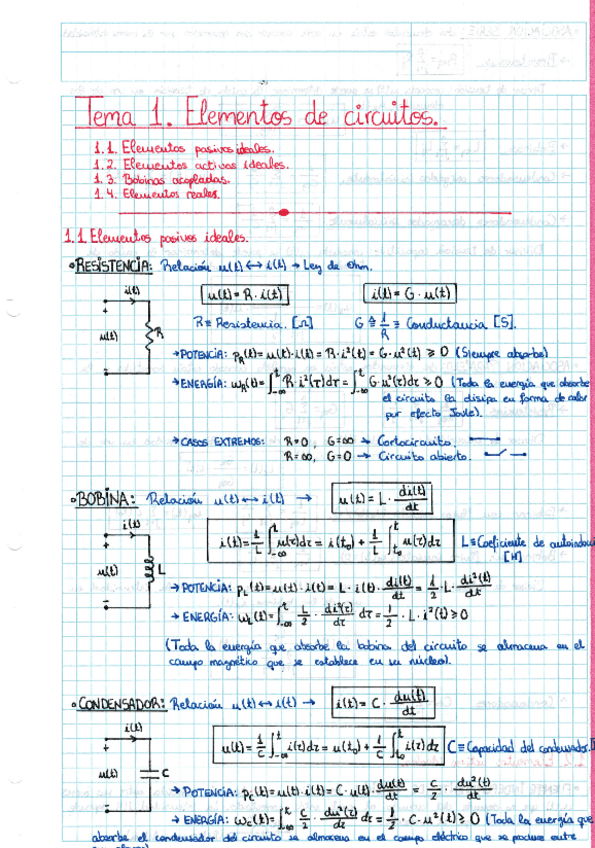 Tema 1. Elementos de circuitos.
1.1. Elementos pasivos ideales.
1.2. Elementos activos ideales.
1.3. Bobinas acopladas.
1.4. Elementos reales.
1.1 Elementos pasivos ideales.
• RESISTENCIA: Relación u(t) ↔ i(t) → Ley de Ohm.
i(t)
+
u(t)
R
-
u(t) = R · i(t)
i(t) = G · u(t)
R ≡ Resistencia. [Ω]
G ≙ 1/R ≡ Conductancia [S].
→ POTENCIA: p_R(t) = u(t) · i(t) = R · i²(t) = G · u²(t) ≥ 0 (Siempre absorbe)
→ ENERGÍA: w_R(t) = ∫_{-∞}^{t} R · i²(τ) dτ = ∫_{-∞}^{t} G · u²(τ) dτ ≥ 0 (Toda la energía que absorbe
el circuito la disipa en forma de calor
por efecto Joule).
→ CASOS EXTREMOS: R=0, G=∞ → Cortocircuito.
R=∞, G=0 → Circuito abierto.
• BOBINA: Relación u(t) ↔ i(t) → u(t) = L · di(t)/dt
i(t)
+
u(t)
L
-
i(t) = 1/L ∫_{-∞}^{t} u(τ) dτ = i(t₀) + 1/L ∫_{t₀}^{t} u(τ) dτ
L ≡ Coeficiente de
[H]
→ POTENCIA: p_L(t) = u(t) · i(t) = L · i(t) · di(t)/dt = 1/2 · L · di²(t)/dt
→ ENERGÍA: w_L(t) = ∫_{-∞}^{t} L/2 · di²(τ)/dτ dτ = 1/2 · L · i²(t) ≥ 0
(Toda la energía que absorbe la bobina del circuito se almacena en el
campo magnético que se establece en su núcleo).
• CONDENSADOR: Relación u(t) ↔ i(t) → i(t) = C · du(t)/dt
i(t)
+
u(t)
C
-
u(t) = 1/C ∫_{-∞}^{t} i(τ) dτ = u(t₀) + 1/C ∫_{t₀}^{t} i(τ) dτ
C ≡ Capacidad del condensador.
→ POTENCIA: p_C(t) = u(t) · i(t) = C · u(t) · du(t)/dt = C/2 · du²(t)/dt
→ ENERGÍA: w_C(t) = ∫_{-∞}^{t} C/2 · du²(τ)/dτ dτ = 1/2 · C · u²(t) ≥ 0 (Toda la energía que
absorbe el condensador del circuito se almacena en el campo eléctrico que se produce entre